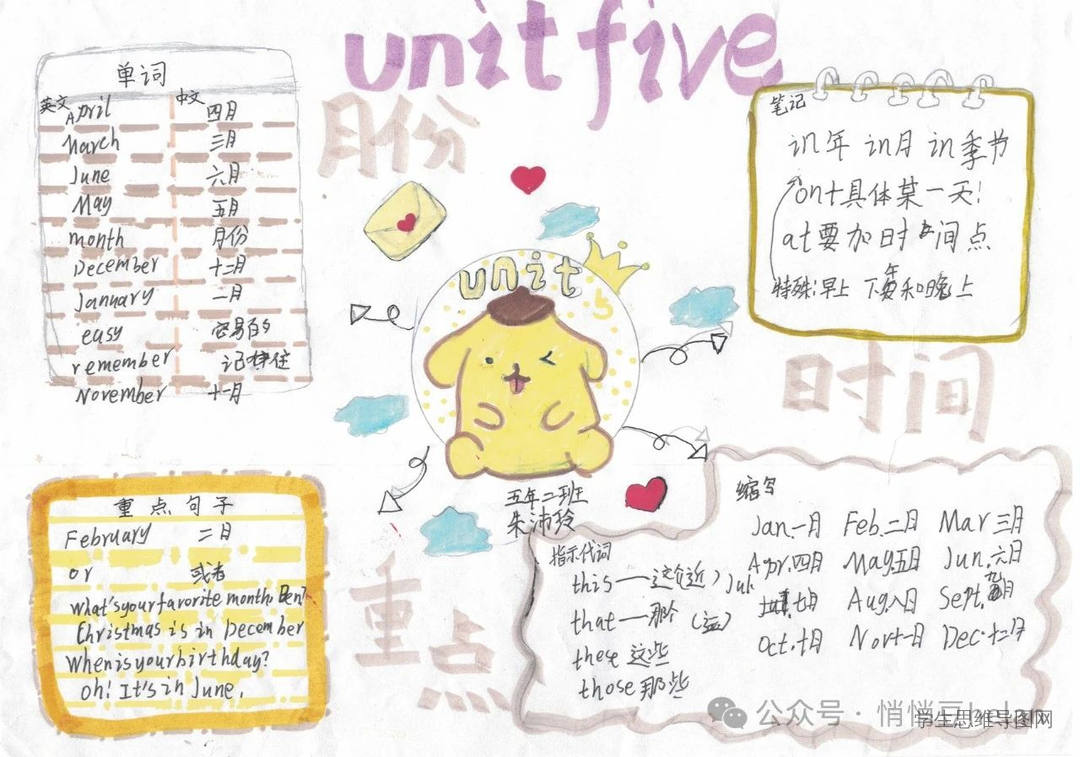 unit five
月份
单词
英文 中文
April 四月
March 三月
June 六月
May 五月
month 月份
December 十二月
January 一月
easy 容易的
remember 记住
November 十一月
笔记
in年 in月 in季节
on+具体某一天!
at要加时间点
特殊:早上 下午和晚上
时间
unit
5
五年二班
朱沛玲
重点句子
February 二月
or 或者
What's your favorite month, Ben?
Christmas is in December
When is your birthday?
oh! It's in June.
重点
指示代词
this—这个(近)
that—那个
these 这些
those 那些
缩写
Jan.一月 Feb.二月 Mar 三月
Apr.四月 May.五月 Jun.六月
Jul 七月 Aug八月 Sept.九月
Oct.十月 Nov十一月 Dec.十二月
公众号·悄悄豆
学生思维导图网